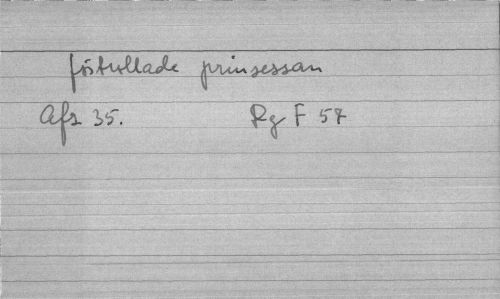 förtrollade prinsessan
Afz 35. Rg F 57